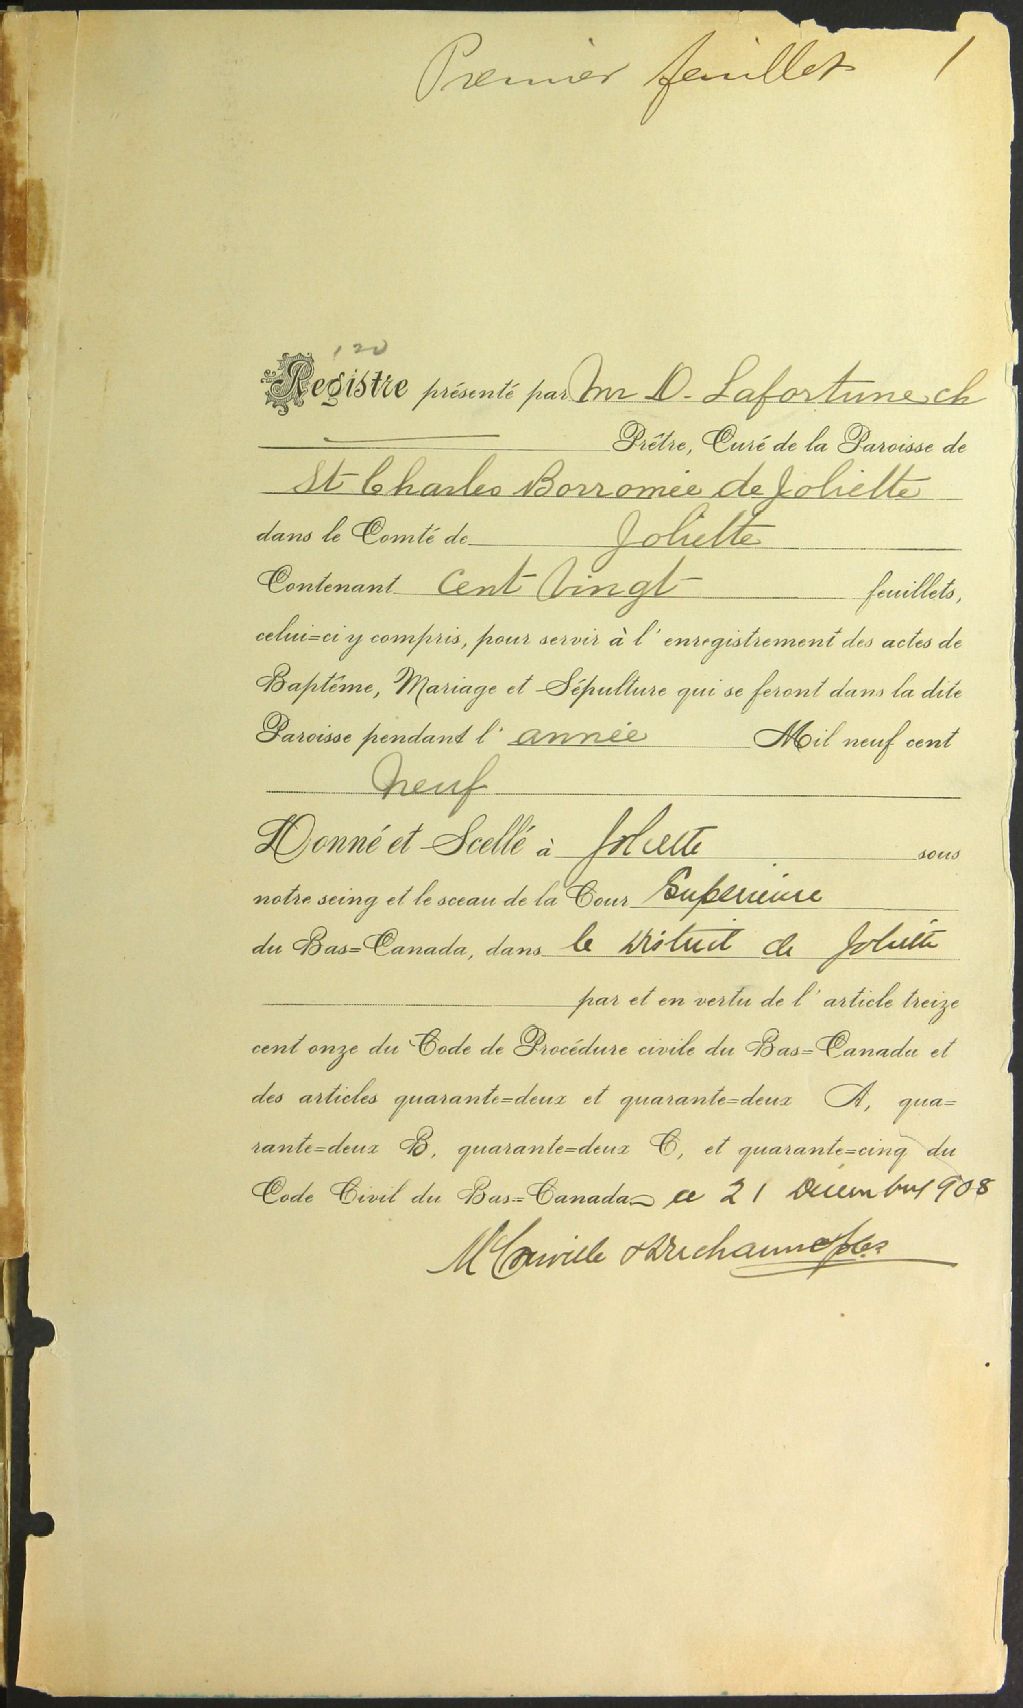 Premier feuillet 1
120
Registre présenté par Mr D. Lafortune, ch
Prêtre, Curé de la Paroisse de
St Charles Borromée de Joliette
dans le Comté de Joliette
Contenant cent vingt feuillets,
celui=ci y compris, pour servir à l'enregistrement des actes de
Baptême, Mariage et Sépulture qui se feront dans la dite
Paroisse pendant l'année Mil neuf cent
neuf
Donné et Scellé à Joliette sous
notre seing et le sceau de la Cour Supérieure
du Bas=Canada, dans le District de Joliette
par et en vertu de l'article treize
cent onze du Code de Procédure civile du Bas=Canada et
des articles quarante=deux et quarante=deux A, qua=
rante=deux B, quarante=deux C, et quarante=cinq du
Code Civil du Bas=Canada ce 21 Décembre 1908